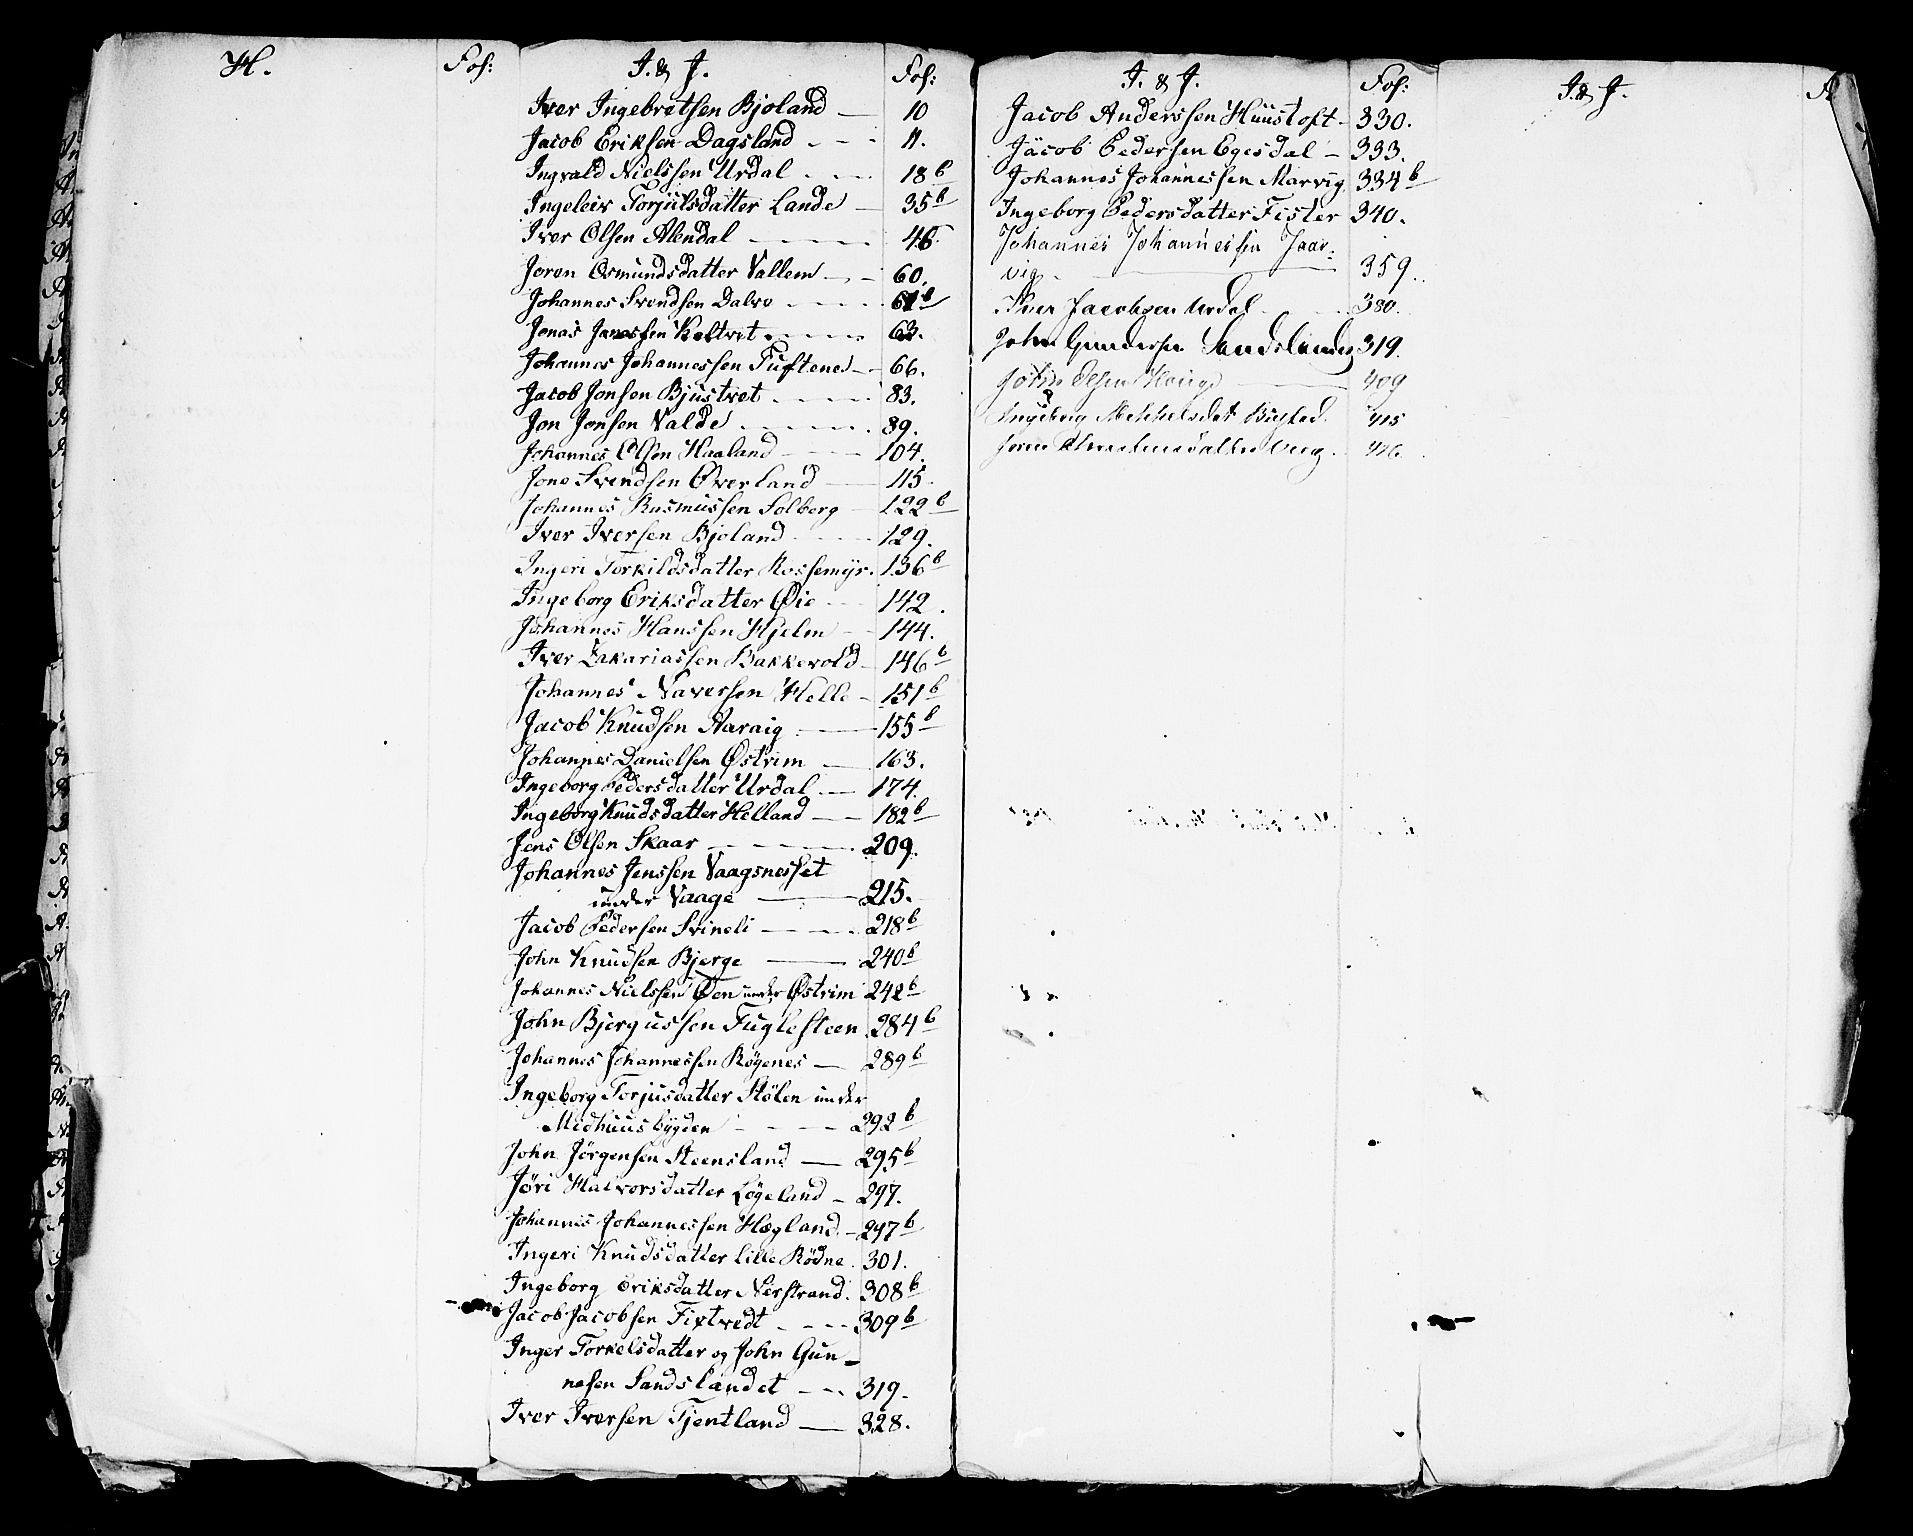 H.
Fol:
I. & J.
Fol:
Iver Ingebretsen Bjoland — 10
Jacob Eriksen Dagsland - - - 11.
Ingvald Nielssen Urdal - - - 18 b
Ingeleiv Torjulsdatter Lande — 35 b
Iver Olsen Alendal - - - 46.
Joren Osmundsdatter Vallem - - - 60.
Johannes Svendsen Dalvo - - - 61 b
Jonas Jonassen Keltvet - - - 63.
Johannes Johannessen Tuftene - - 66.
Jacob Jonsen Bjustvet - - - 83.
Jon Jonsen Valde - - - 89.
Johannes Olsen Haaland - - - 104.
Jone Svendsen Øverland — 115.
Johannes Rasmussen Solberg — 122 b
Iver Iversen Bjoland - - - 129.
Ingeri Torkildsdatter Rossemyr. 136 b
Ingeborg Eriksdatter Øie - - - 142.
Johannes Hanssen Hjelm - - 144.
Iver Zakariassen Bakkevold - 146 b
Johannes Naversen Helle - 151 b
Jacob Knudsen Aaraig — 155 b
Johannes Danielsen Østrim — 163.
Ingeborg Pedersdatter Urdal - — 174.
Ingeborg Knudsdatter Helland — 182 b
Jens Olsen Skaar - - - 209.
Johannes Jenssen Vaagsnesset
under Vaage — 215.
Jacob Pedersen Svineli - - - 218 b
John Knudsen Bjerge — 240 b
Johannes Nielssen Øen under Østrim 242 b
John Bjergussen Fuglesteen 284 b
Johannes Johannessen Røgenes — 289 b
Ingeborg Torjusdatter Stölen under
Midhuusbygden - - - 292 b
John Jörgensen Steensland — 295 b
Jöri Halvorsdatter Løgeland - 297.
Johannes Johannessen Hægland - 297 b
Ingeri Knudsdatter lille Rödne. 301.
Ingeborg Eriksdatter Nerstrand. 308 b
Jacob Jacobsen Fixtvedt - - - 309 b
Inger Torkelsdatter og John Gun-
nesen Sandslandet - - - 319.
Iver Iversen Tjentland — 328.
I. & J.
Fol:
Jacob Anderssen Huustoft - 330.
Jacob Pedersen Egesdal - 333.
Johannes Johannessen Marvig 334 b
Ingeborg Pedersdatter Fister 340.
Johannes Johannessen Jaar-
vig — 359.
Iver Jacobsen Urdal - - 380.
John Gundersen Sandslandet 319.
John Olsen Hauge — 409
Ingeborg Mekkelsdat 415
Joren 416
I. & J.